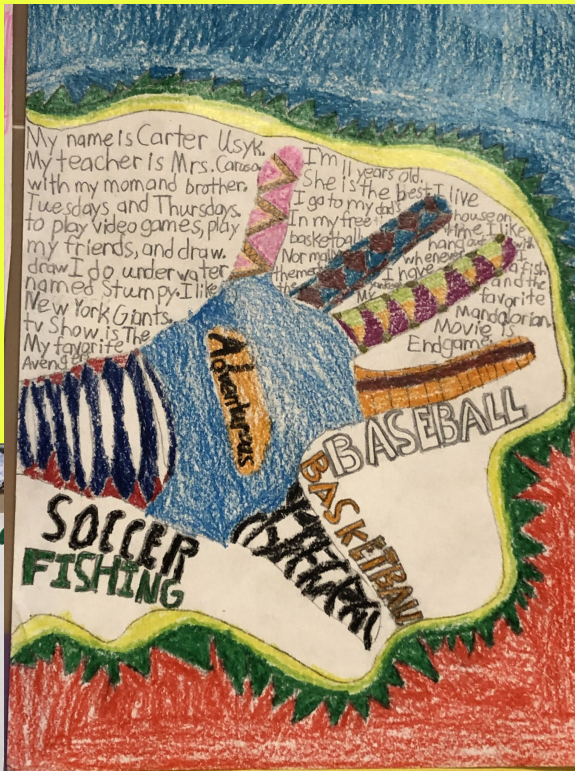 My name is Carter Usyk. I'm 11 years old.
My teacher is Mrs. Caruso She is the best. I live
with my mom and brother. I go to my dad's house on
Tuesdays and Thursdays. In my free time I like
to play video games, play basketball, hang out with
my friends, and draw. Normally whenever I
draw I do underwater themes I have a fish
named Stumpy. I like and the
New York Giants. My favorite
tv Show is The Mandalorian.
My favorite Movie is
Avengers Endgame.
Adventurous
BASEBALL
BASKETBALL
SOCCER
FISHING